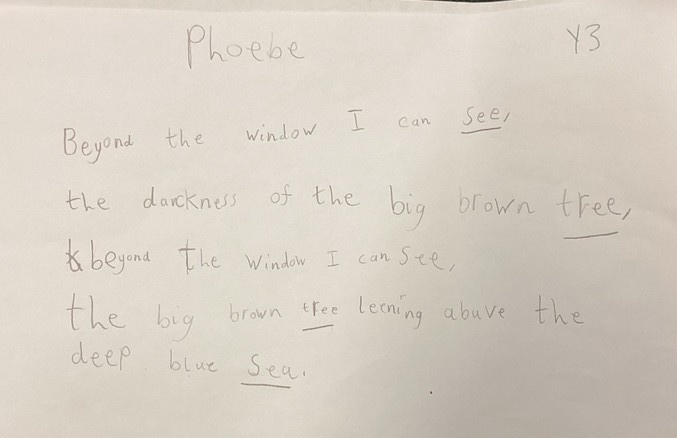 Phoebe Y3
Beyond the window I can see,
the darckness of the big brown tree,
beyond the window I can see,
the big brown tree leening abuve the
deep blue sea.